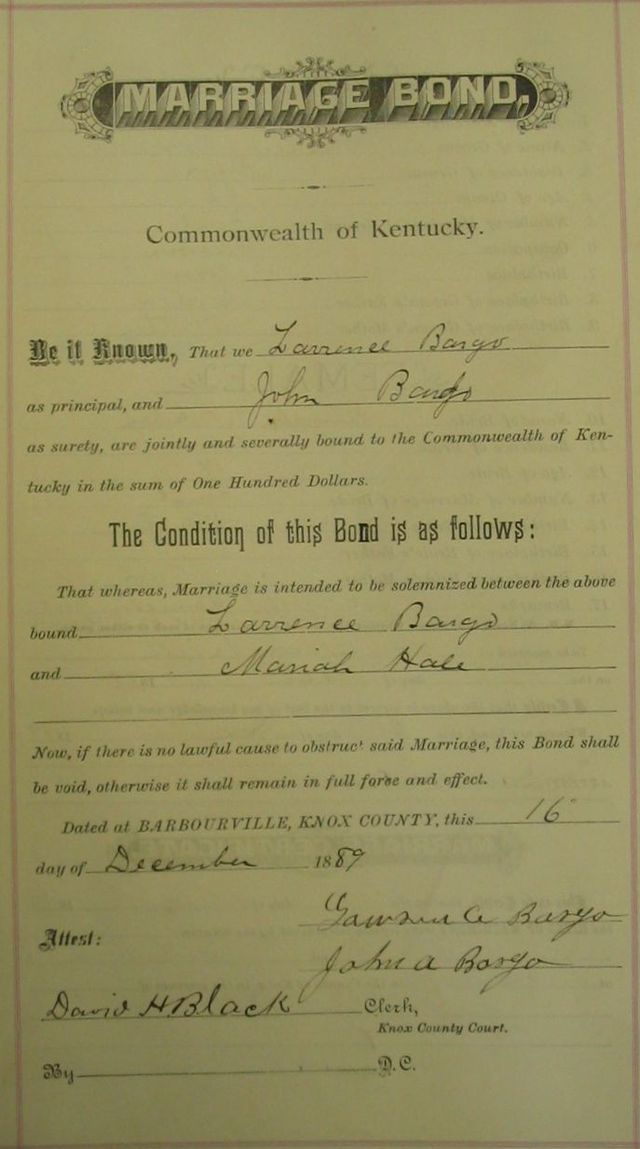 MARRIAGE BOND.
Commonwealth of Kentucky.
Be it Known, That we Larrence Bargo
as principal, and John Bargo
as surety, are jointly and severally bound to the Commonwealth of Ken-
tucky in the sum of One Hundred Dollars.
The Condition of this Bond is as follows:
That whereas, Marriage is intended to be solemnized between the above
bound Larrence Bargo
and Mariah Hale
Now, if there is no lawful cause to obstruct said Marriage, this Bond shall
be void, otherwise it shall remain in full force and effect.
Dated at BARBOURVILLE, KNOX COUNTY, this 16
day of December 1889
Bargo
Attest:
John A Bargo
David H Black Clerk,
Knox County Court.
By D.C.